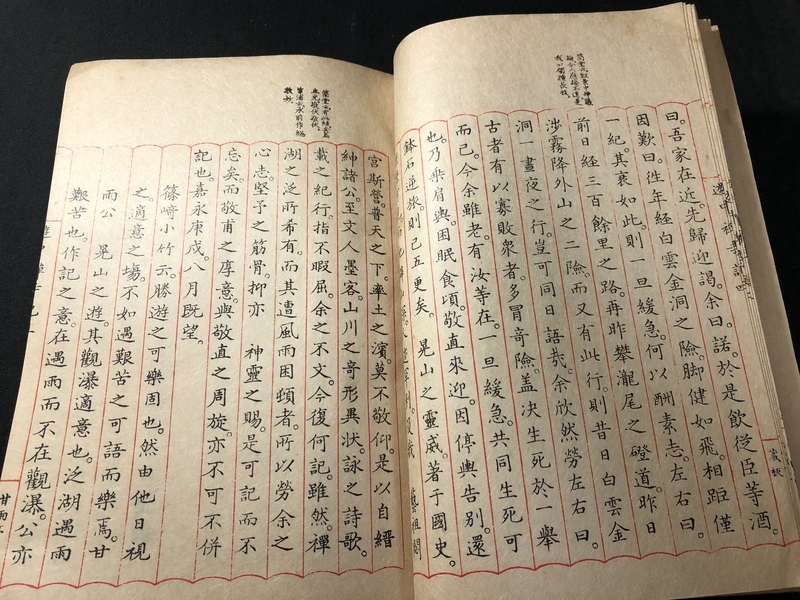 曰。吾家在近。先歸迎謁。余曰。諾。於是飲從臣等酒。
因歎曰。徃年經白雲金洞之險。脚健如飛。相距僅
一紀。其衰如此。則一旦緩急。何以酬素志。左右曰。
前日經三百餘里之路。再昨攀瀧尾之磴道。昨日
涉霧降外山之二險。而又有此行。則昔日白雲金
洞一晝夜之行。豈可同日語哉。余欣然勞左右曰。
古者有以寡敗衆者。多冒奇險。盖决生死於一擧
而已。今余雖老。有汝等在。一旦緩急。共同生死可
也。乃乘肩輿。因眠食頃。敬直來迎。因停輿告別。還
鉢石逆旅。則已五更矣。 晃山之靈威。著于國史。
藝祖開
宮斯營。普天之下。率土之濱。莫不敬仰。是以自縉
紳諸公。至文人墨客。山川之奇形異狀。詠之詩歌。
載之紀行。指不暇屈。余之不文。今復何記。雖然。禪
湖之泛。所希有。而其遭風雨困頓者。所以勞余之
心志。堅予之筋骨。抑亦 神靈之賜。是可記而不
忘矣。而敬甫之厚意。與敬直之周旋。亦不可不併
記也。嘉永庚戌。八月既望。
篠﨑小竹云。勝遊之可樂周也。然由他日視
之。適意之塲。不如遇艱苦之可語而樂焉。甘
雨公 晃山之遊。其觀瀑適意也。泛湖遇雨
艱苦也。作記之意。在遇雨而不在觀瀑。公亦